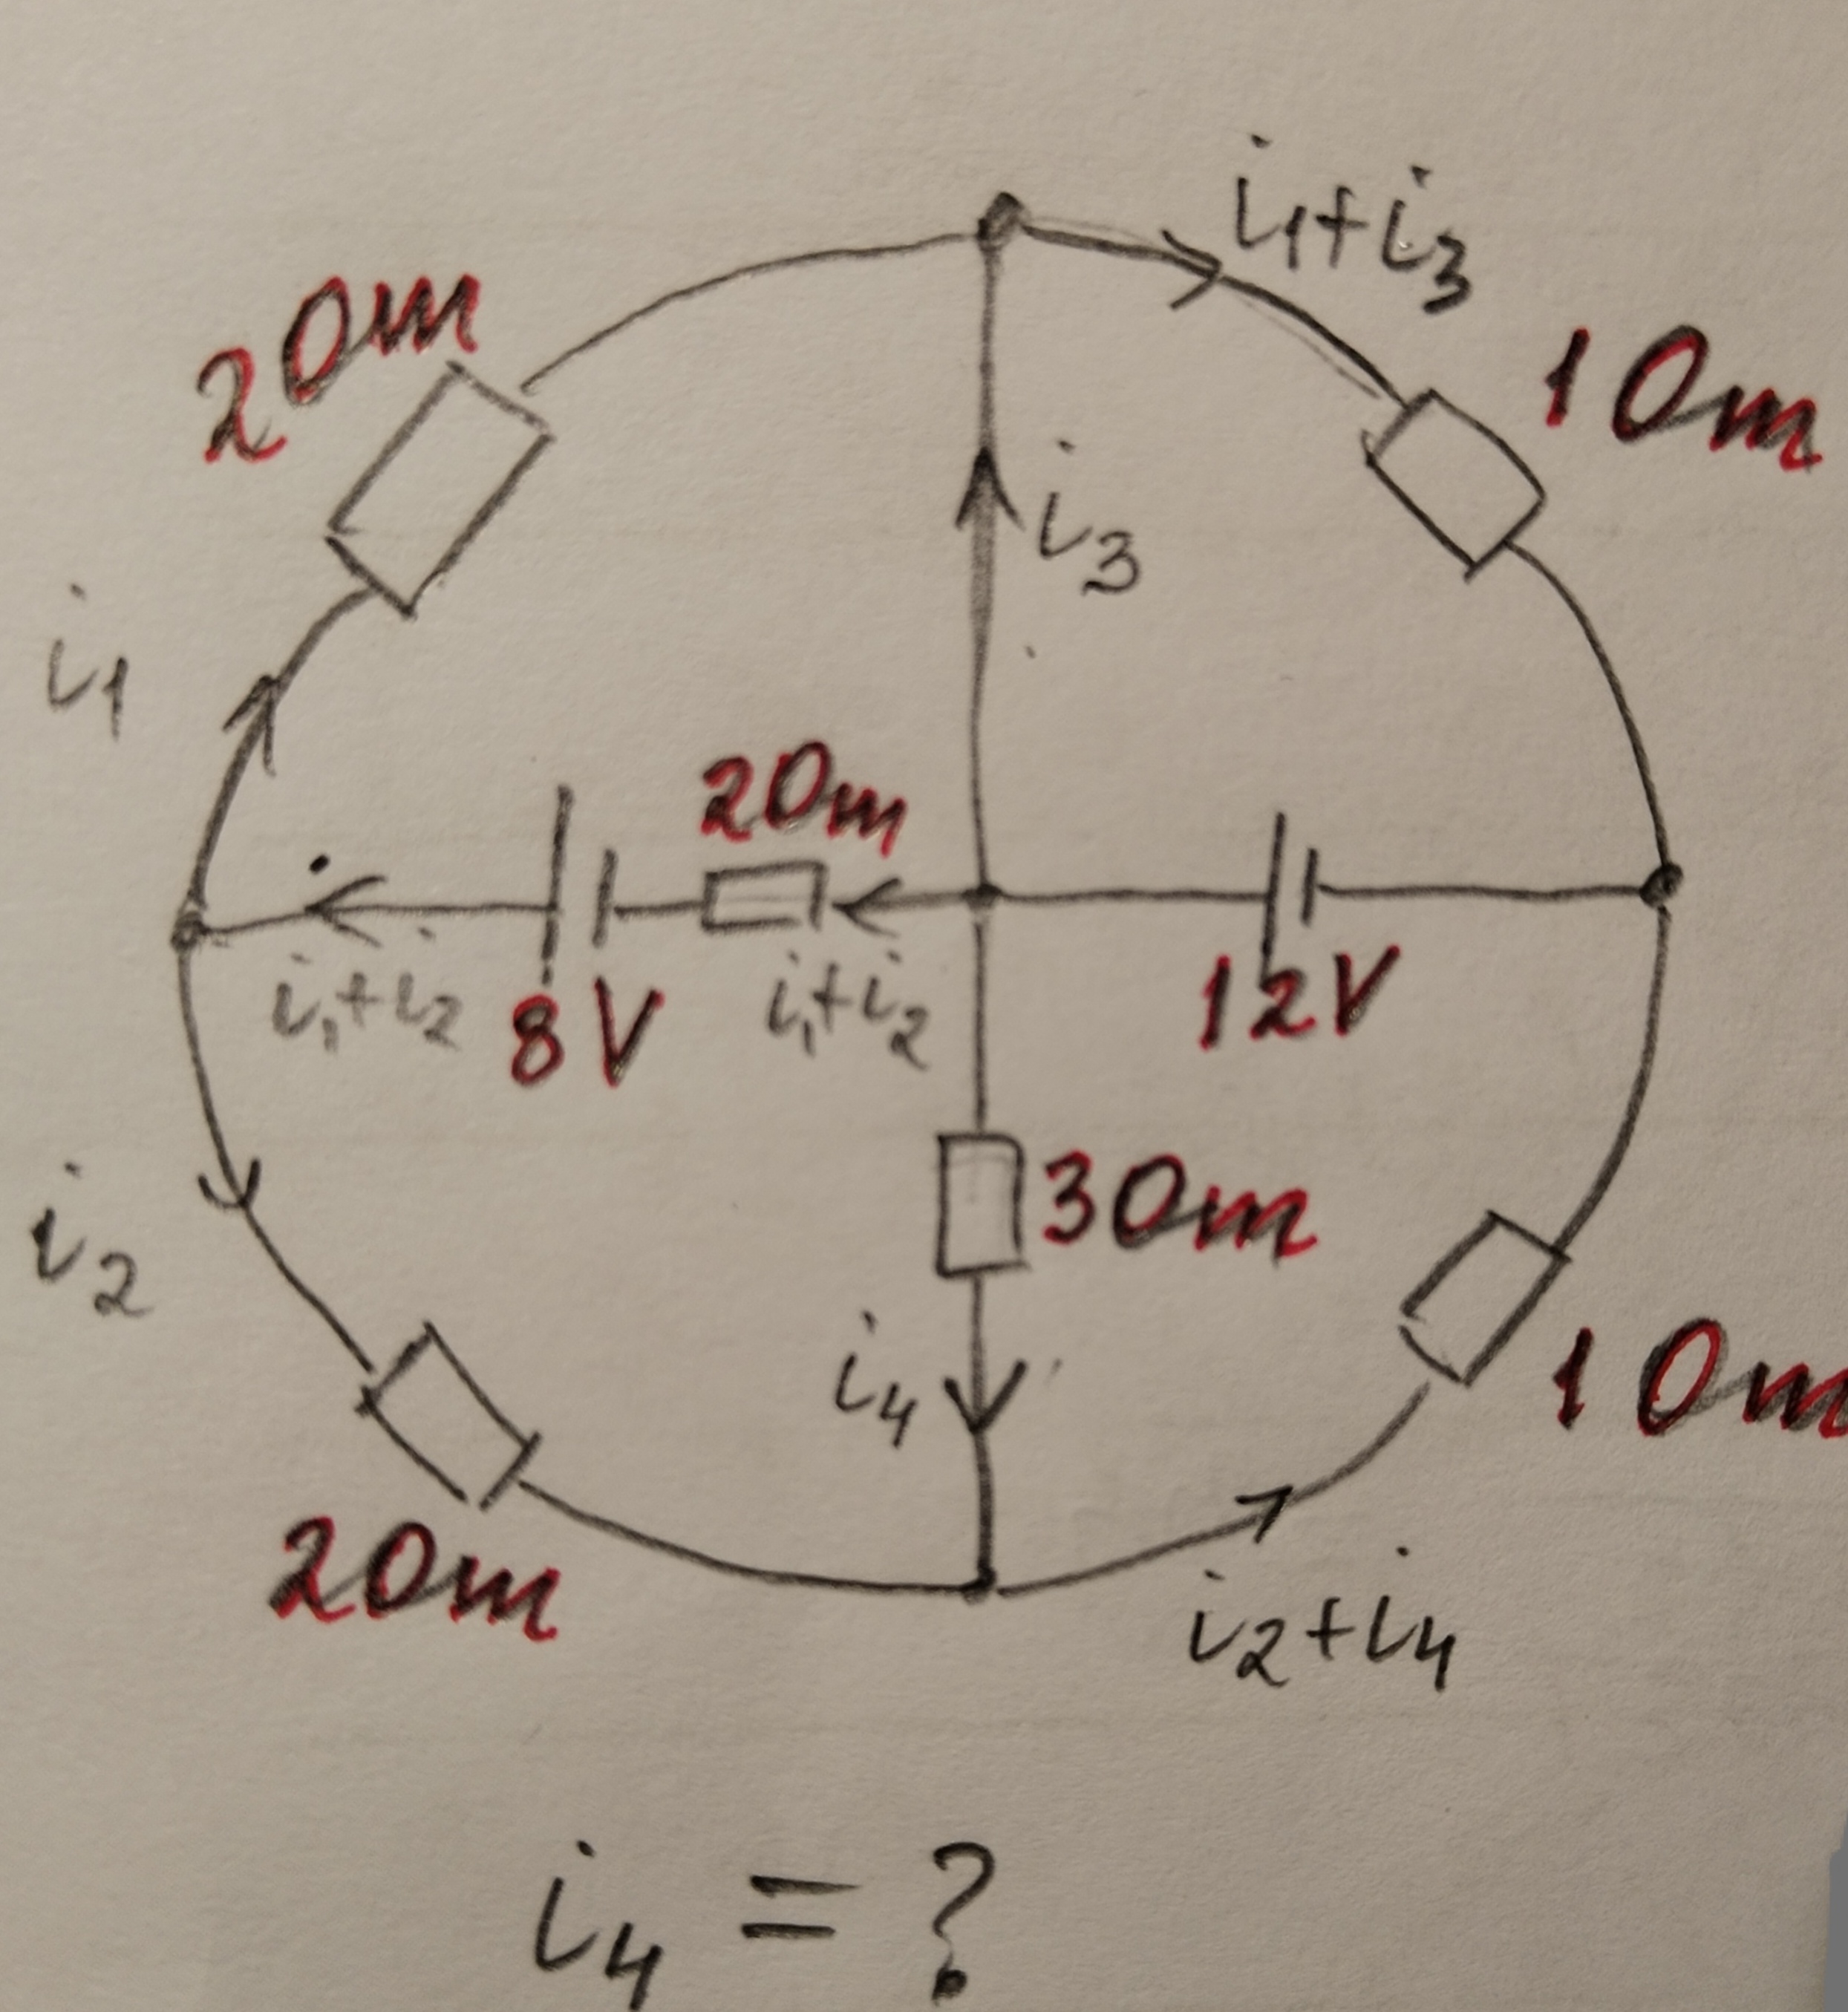 i1+i3
2Om
1Om
i3
i1
2Om
i1+i2
8V
i1+i2
12V
3Om
i2
i4
1Om
2Om
i2+i4
i4 = ?